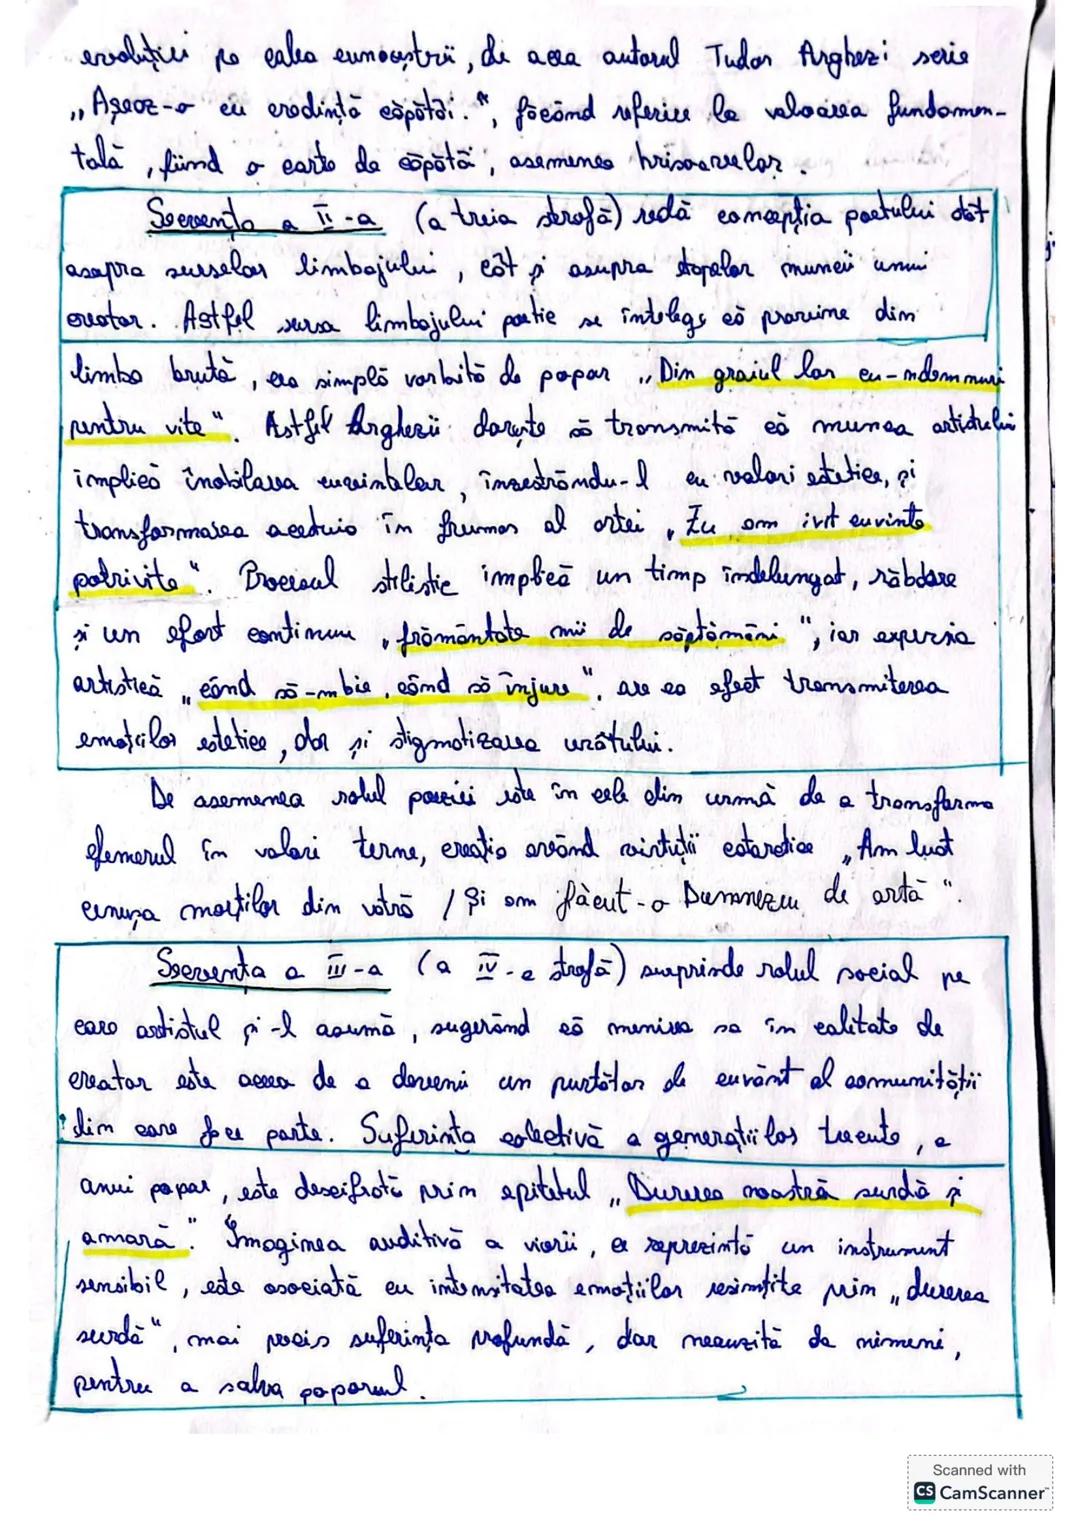 evoluției pe calea cunoașterii, de aceea autorul Tudor Arghezi scrie
„Așeaz-o cu credință căpătâi.", făcând referire la valoarea fundamen-
tală, fiind o carte de căpătâi, asemenea hrisoavelor.
Secvența a II-a (a treia strofă) redă concepția poetului atât
asupra surselor limbajului, cât și asupra etapelor muncii unui
creator. Astfel sursa limbajului poetic se înțelege că provine din
limba brută, cea simplă vorbită de popor „Din graiul lor cu-ndemnuri
pentru vite". Astfel Arghezi dorește să transmită că munca artistului
implică înobilarea cuvintelor, înzestrându-l cu valori estetice, și
transformarea acestuia în frumos al artei „Eu am ivit cuvinte
potrivite". Procesul stilistic implică un timp îndelungat, răbdare
și un efort continuu „frământate mii de săptămâni", iar expresia
artistică „când să-mbie, când să înjure", are ca efect transmiterea
emoțiilor estetice, dar și stigmatizarea urâtului.
De asemenea rolul poeziei este în cele din urmă de a transforma
efemerul în valori terne, creația având virtuții catartice „Am luat
cenușa morților din vatră / Și am făcut-o Dumnezeu de artă".
Secvența a III-a (a IV-a strofă) surprinde rolul social pe
care artistul și-l asumă, sugerând că menirea sa în calitate de
creator este aceea de a deveni un purtător de cuvânt al comunității
din care face parte. Suferința colectivă a generațiilor trecute, a
unui popor, este descifrată prin epitetul „Durerea noastră surdă și
amară". Imaginea auditivă a viorii, ce reprezintă un instrument
sensibil, este asociată cu intensitatea emoțiilor resimțite prin „durerea
surdă", mai precis suferința profundă, dar neauzită de nimeni,
pentru a salva poporul.
Scanned with
CS CamScanner